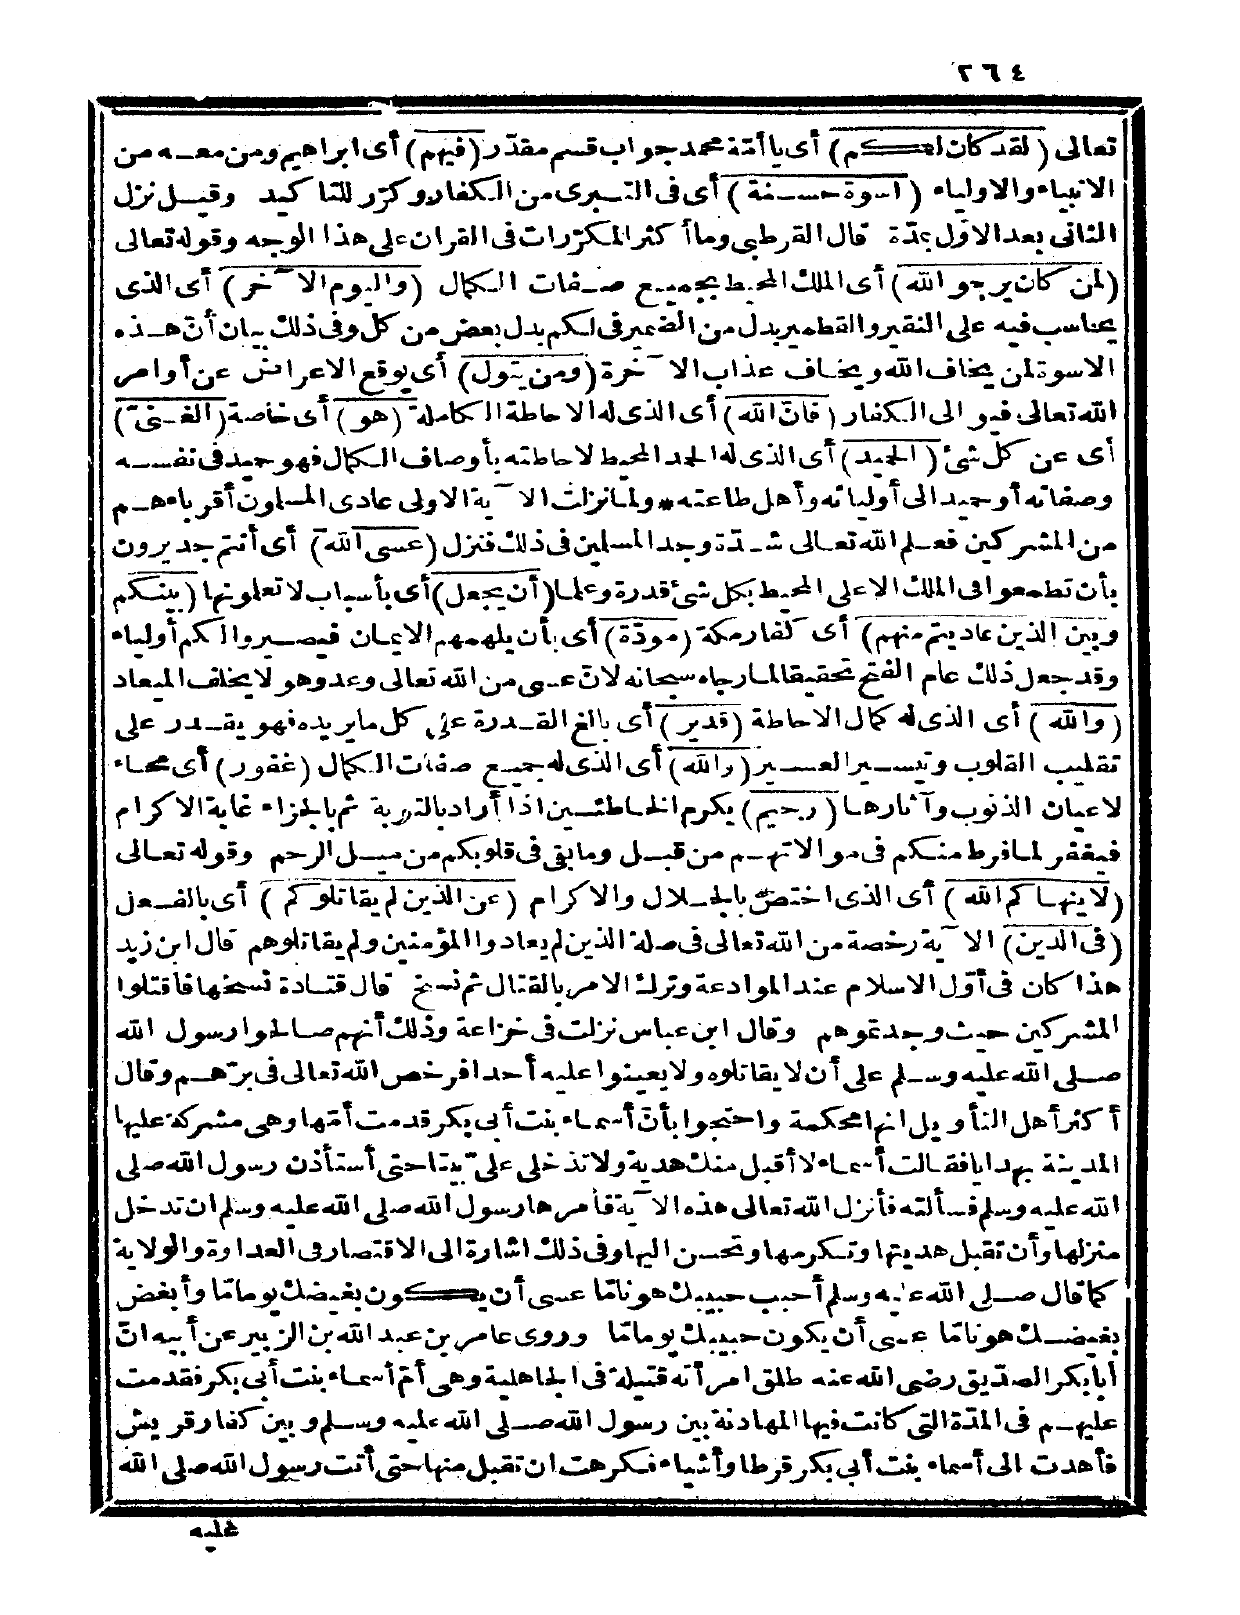 ٢٦٤
تعالى (لقد كان لكم) أى يا أمّة محمد جواب قسم مقدّر (فيهم) أى ابراهيم ومن معه من
الانبياء والاولياء (اسوة حسنة) أى فى التبرى من الكفار وكرّر للتاكيد وقيل نزل
الثانى بعد الاوّل بمدّة قال القرطبى وما أكثر المكرّرات فى القران على هذا الوجه وقوله تعالى
(لمن كان يرجو الله) أى الملك المحيط بجميع صفات الكمال (واليوم الآخر) أى الذى
يحاسب فيه على النقير والقطمير بدل من الضمير فى لكم بدل بعض من كل وفى ذلك بيان أنّ هذه
الاسوة لمن يخاف الله ويخاف عذاب الآخرة (ومن يتول) أى يوقع الاعراض عن أوامر
الله تعالى فيو الى الكفار (فانّ الله) أى الذى له الاحاطة الكاملة (هو) أى خاصة (الغنىّ)
أى عن كل شئ (الحميد) أى الذى له الحمد المحيط لاحاطته بأوصاف الكمال فهو حميد فى نفسه
وصفاته أو حميد الى أوليائه وأهل طاعته * ولما نزلت الآية الاولى عادى المسلمون أقرباءهم
من المشركين فعلم الله تعالى شدّة وجد المسلمين فى ذلك فنزل (عسى الله) أى أنتم جديرون
بأن تطمعوا فى الملك الاعلى المحيط بكل شئ قدرة وعلما (أن يجعل) أى بأسباب لا تعلمونها (بينكم
وبين الذين عاديتم منهم) أى كفار مكة (مودّة) أى بأن يلهمهم الايمان فيصيروا لكم أولياء
وقد جعل ذلك عام الفتح تحقيقا لما رجاه سبحانه لانّ عسى من الله تعالى وعد وهو لا يخلف الميعاد
(والله) أى الذى له كمال الاحاطة (قدير) أى بالغ القدرة على كل ما يريده فهو يقدر على
تقليب القلوب وتيسير العسير (والله) أى الذى له جميع صفات الكمال (غفور) أى محاء
لاعيان الذنوب وآثارها (رحيم) يكرم الخاطئين اذا أراد بالتوبة ثم بالجزاء غاية الاكرام
فيغفر لما فرط منكم فى موالاتهم من قبل وما بقى فى قلوبكم من ميل الرحم وقوله تعالى
(لا ينهاكم الله) أى الذى اختصّ بالجلال والاكرام (عن الذين لم يقاتلوكم) أى بالفعل
(فى الدين) الآية رخصة من الله تعالى فى صلة الذين لم يعادوا المؤمنين ولم يقاتلوهم قال ابن زيد
هذا كان فى أوّل الاسلام عند الموادعة وترك الامر بالقتال ثم نسخ قال قتادة نسخها فاقتلوا
المشركين حيث وجدتموهم وقال ابن عباس نزلت فى خزاعة وذلك أنهم صالحوا رسول الله
صلى الله عليه وسلم على أن لا يقاتلوه ولا يعينوا عليه أحدا فرخص الله تعالى فى برّهم وقال
أكثر أهل التأويل انها محكمة واحتجوا بأنّ أسماء بنت أبى بكر قدمت أمّها وهى مشركة عليها
المدينة بهدايا فقالت أسماء لا أقبل منك هدية ولا تدخلى علىّ بيتا حتى أستأذن رسول الله صلى
الله عليه وسلم فسألته فأنزل الله تعالى هذه الآية فأمرها رسول الله صلى الله عليه وسلم ان تدخل
منزلها وأن تقبل هديتها وتكرمها وتحسن اليها وفى ذلك اشارة الى الاقتصار فى العداوة والولاية
كما قال صلى الله عليه وسلم أحبب حبيبك هونا مّا عسى أن يكون بغيضك يوما مّا وأبغض
بغيضك هونا مّا عسى أن يكون حبيبك يوما مّا وروى عامر بن عبد الله بن الزبير عن أبيه انّ
أبا بكر الصدّيق رضى الله عنه طلق امرأته قتيلة فى الجاهلية وهى أمّ أسماء بنت أبى بكر فقدمت
عليهم فى المدّة التى كانت فيها المهادنة بين رسول الله صلى الله عليه وسلم وبين كفار قريش
فأهدت الى أسماء بنت أبى بكر قرطا وأشياء فكرهت ان تقبل منها حتى أتت رسول الله صلى الله
عليه